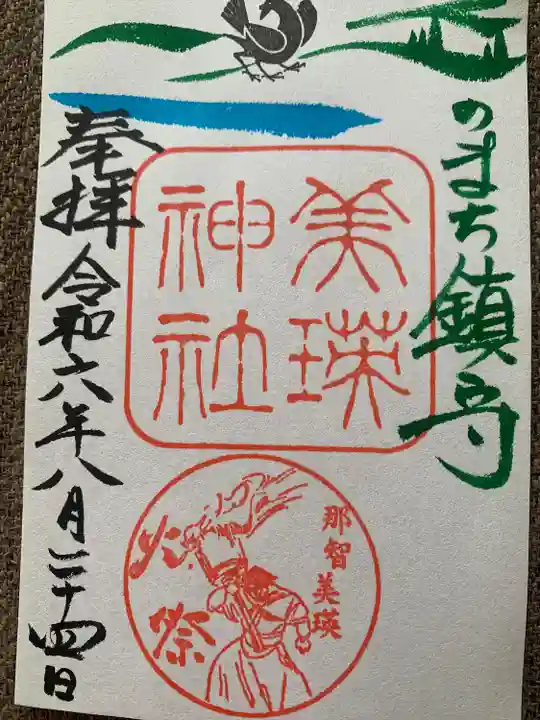 のまち鎮守
美瑛
神社
那智美瑛
火祭
奉拝 令和六年八月二十四日